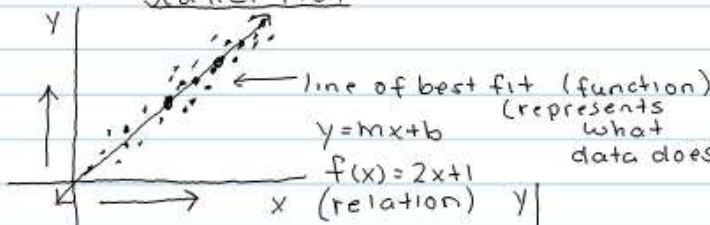 Y
line of best fit (function)
(represents
y=mx+b what
data does
f(x)=2x+1
x (relation) y